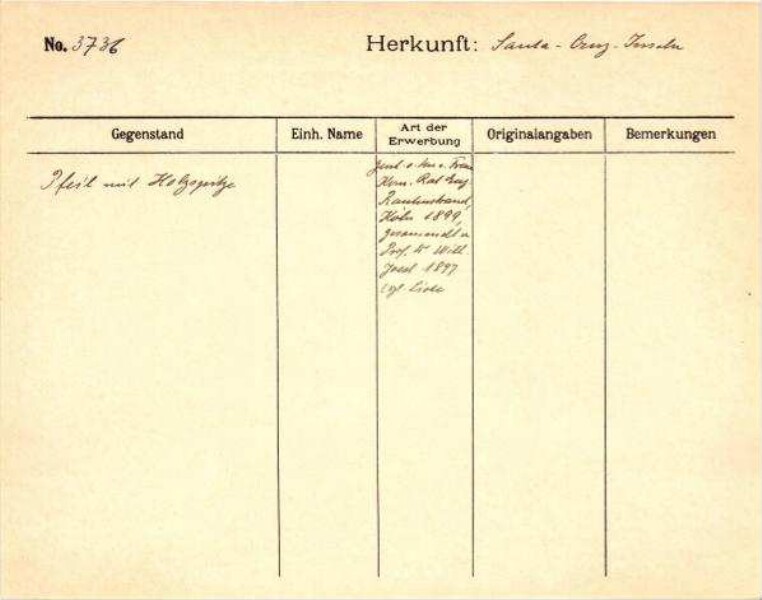 No. 3736 Herkunft: Santa-Cruz-Inseln
Gegenstand Einh. Name Art der Erwerbung Originalangaben Bemerkungen
Pfeil mit Holzspitze
Frau
Kom. Rat Eug.
Rautenstrauch,
Köln 1899,
gesammelt v.
Prof. Dr. Wilh.
Joest 1897